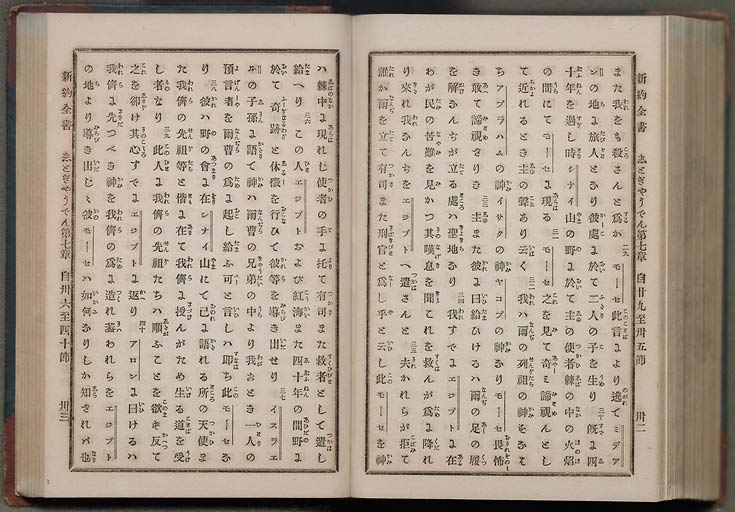 新約全書 志とぎやうでん第七章 自廿九至卅五節 卅二
また我をも殺さんと爲か 二九 モーセ此言により逃てミデア
ンの地に旅人となり彼處に於て二人の子を生り 三十 既に四
十年を過し時シナイ山の野に於て主の使者棘の中の火焰
の間にてモーセに現る 三一 モーセ之を見て奇しみ諦視んとし
て近れるとき主の聲あり云く 三二 我ハ爾の列祖の神すなは
ちアブラハムの神イサクの神ヤコブの神なりモーセ畏怖
き敢て諦視ざりき 三三 主また彼に曰給ひけるハ爾の足の履
を解なんぢが立る處ハ聖地なり 三四 我すでにエジプトに在
わが民の苦難を見かつ其嘆息を聞これを救んが爲に降れ
り來れ我なんぢをエジプトへ遣さんと 三五 夫かれらが拒て
誰か爾を立て有司また刑官と爲しやと云し此モーセを神
ハ棘中に現れし使者の手に托て有司また救者として遣し
給へり 三六 この人エジプトおよび紅海また四十年の間野に
於て奇跡と休徵を行ひて彼等を導き出せり 三七 イスラエ
ルの子孫に語て神ハ爾曹の兄弟の中より我ごとき一人の
預言者を爾曹の爲に起し給ふ可と言しハ即ち此モーセな
り 三八 彼ハ野の會に在シナイ山にて己に語れる所の天使ま
た我儕の先祖等と偕に在て我儕に授んがため生る道を受
し者なり 三九 此人に我儕の先祖たちハ順ふことを欲ず反て
之を卻け其心すでにエジプトに返り 四十 アロンに曰けるハ
我儕に先だつべき神を我儕の爲に造れ蓋われらをエジプト
の地より導き出しゝ彼モーセハ如何なりしか知ざれバ也
新約全書 志とぎやうでん第七章 自卅六至四十節 卅三